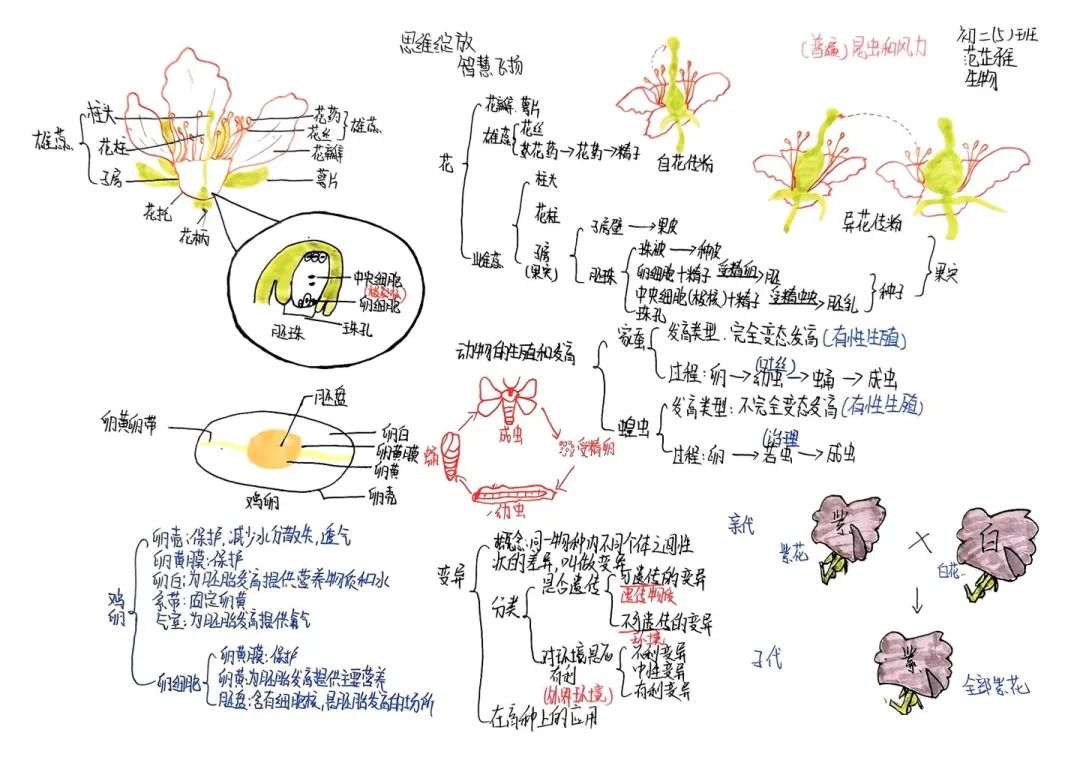 思维绽放
智慧飞扬
(普遍)昆虫和风力
初二(5)班
范芷雅
生物
柱头
雄蕊
花柱
子房
花托
花柄
花药
花丝
雄蕊
花瓣
萼片
中央细胞
(极核)
卵细胞
胚珠
珠孔
花
花瓣.萼片
雄蕊
花丝
花药→花药→精子
雌蕊
柱头
花柱
子房
(果实)
子房壁→果皮
胚珠
珠被→种皮
卵细胞+精子 受精卵→胚
中央细胞(极核)+精子 受精中央→胚乳
珠孔
种子
果实
自花传粉
异花传粉
动物的生殖和发育
家蚕
发育类型:完全变态发育(有性生殖)
(吐丝)
过程:卵→幼虫→蛹→成虫
蝗虫
发育类型:不完全变态发育(有性生殖)
(治理)
过程:卵→若虫→成虫
胚盘
卵黄卵带
卵白
卵黄膜
卵黄
卵壳
鸡卵
成虫
受精卵
幼虫
蛹
鸡卵
卵壳:保护,减少水分散失,透气
卵黄膜:保护
卵白:为胚胎发育提供营养物质和水
系带:固定卵黄
气室:为胚胎发育提供氧气
卵细胞
卵黄膜:保护
卵黄:为胚胎发育提供主要营养
胚盘:含有细胞核,是胚胎发育的场所
变异
概念:同一物种内不同个体之间性
状的差异,叫做变异
分类
是否遗传
可遗传的变异
遗传物质
不可遗传的变异
环境
对环境是否
有利
(外界环境)
不利变异
中性变异
有利变异
在育种上的应用
亲代
紫花
紫
×
白
白花
子代
紫
全部紫花